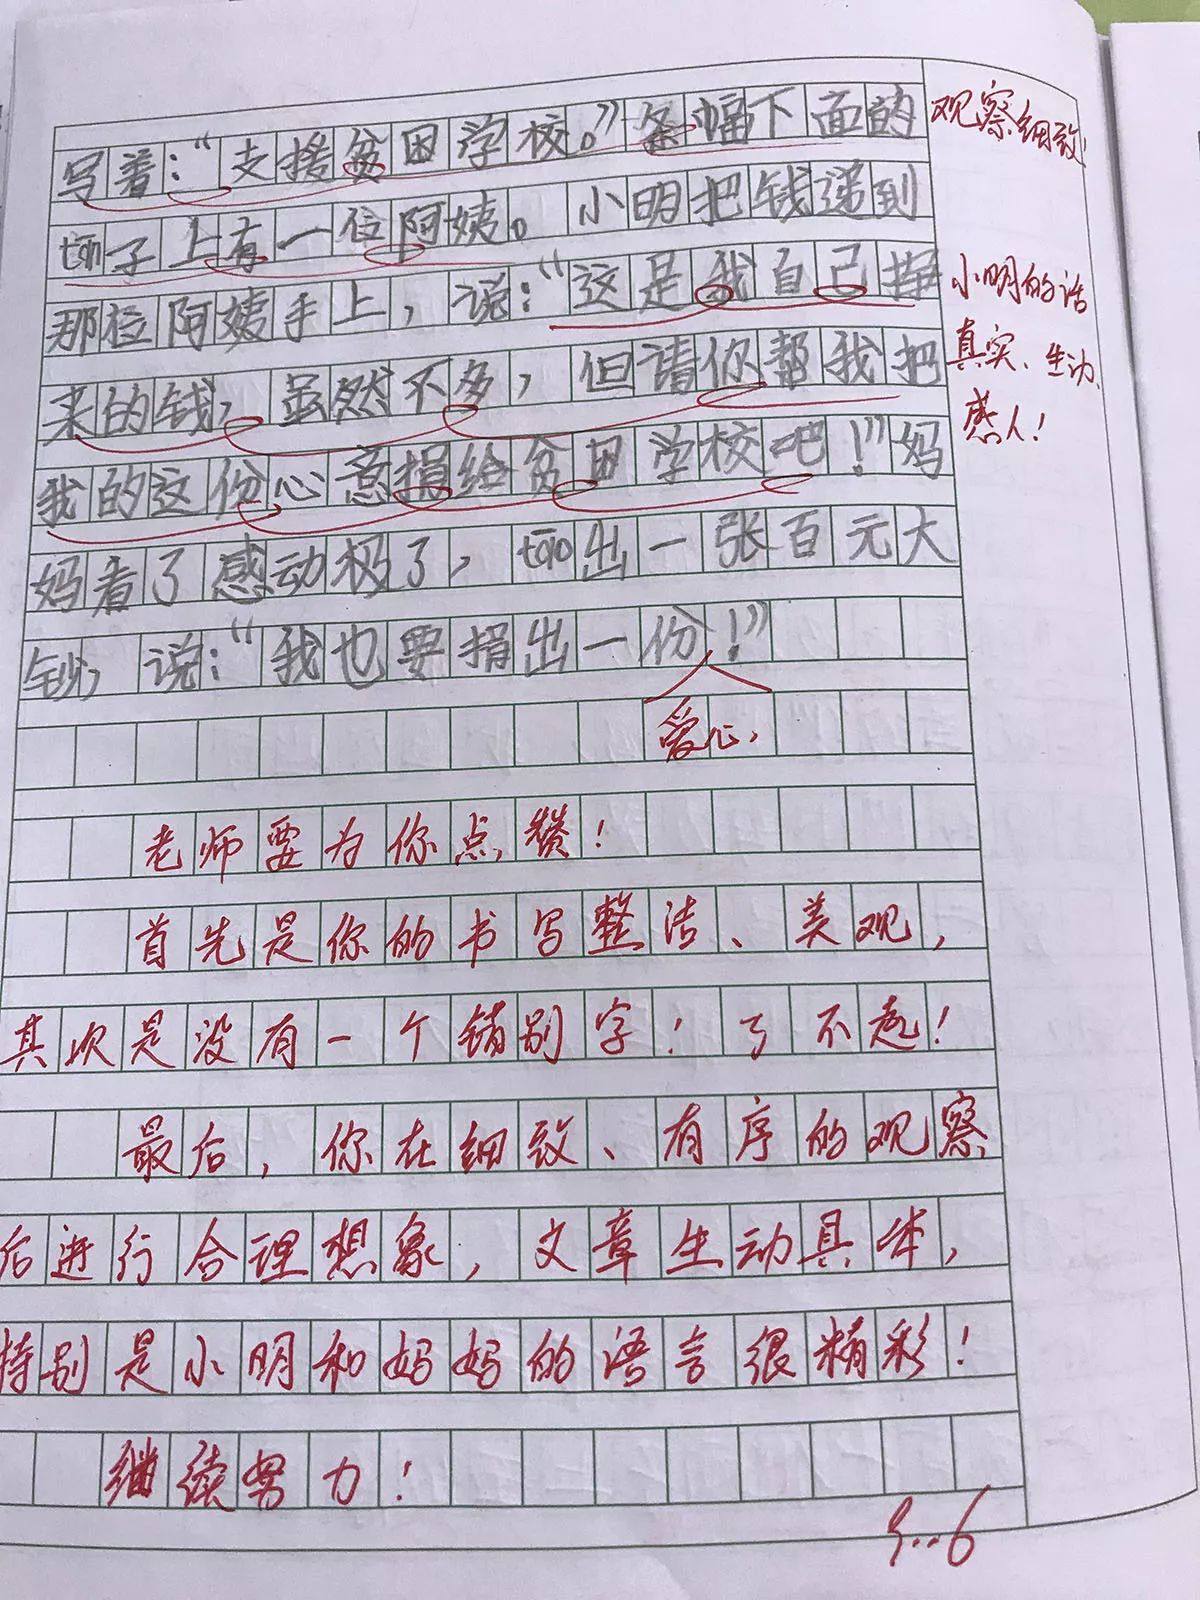 写着：“支援贫困学校。”条幅下面的
tái子上有一位阿姨。小明把钱递到
那位阿姨手上，说：“这是我自己挣
来的钱，虽然不多，但请你帮我把
我的这份心意捐给贫困学校吧！”妈
妈看了感动极了，tāo出一张百元大
钞，说：“我也要捐出一份！”
爱心，
观察细致！
小明的话
真实、生动、
感人！
老师要为你点赞！
首先是你的书写整洁、美观，
其次是没有一个错别字！了不起！
最后，你在细致、有序的观察
后进行合理想象，文章生动具体，
特别是小明和妈妈的语言很精彩！
继续努力！
9..6